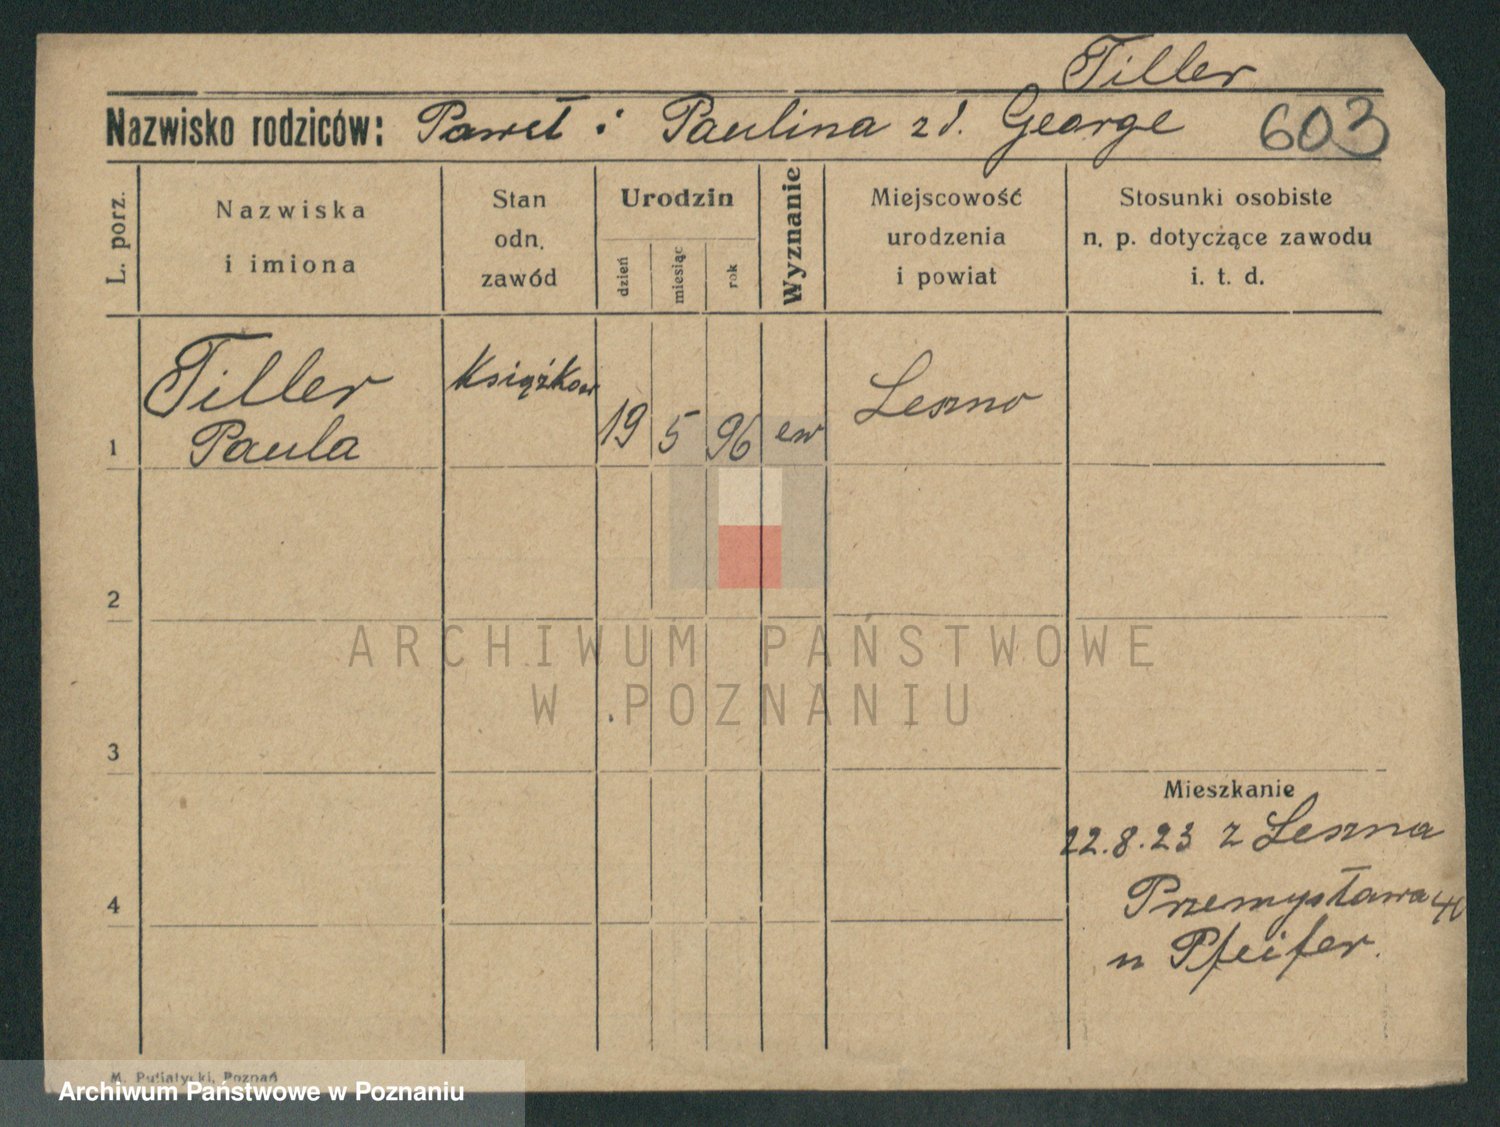 Tiller
Nazwisko rodziców: Paweł i Paulina zd. George 603
L. porz.
Nazwiska
i imiona
Stan
odn.
zawód
Urodzin
dzień
miesiąc
rok
Wyznanie
Miejscowość
urodzenia
i powiat
Stosunki osobiste
n. p. dotyczące zawodu
i. t. d.
1
Tiller
Paula
Książkow
19 5 96 ew
Leszno
2
ARCHIWUM PAŃSTWOWE
W POZNANIU
3
4
Mieszkanie
22.8.23 z Leszna
Przemysława
u Pfeifer.
M. Putiatycki, Poznań
Archiwum Państwowe w Poznaniu